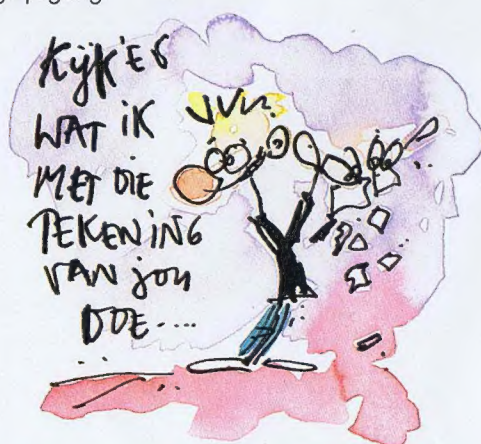 KijK'ES
WAT iK
MET DiE
TEKENiNG
VAN jou
DOE....